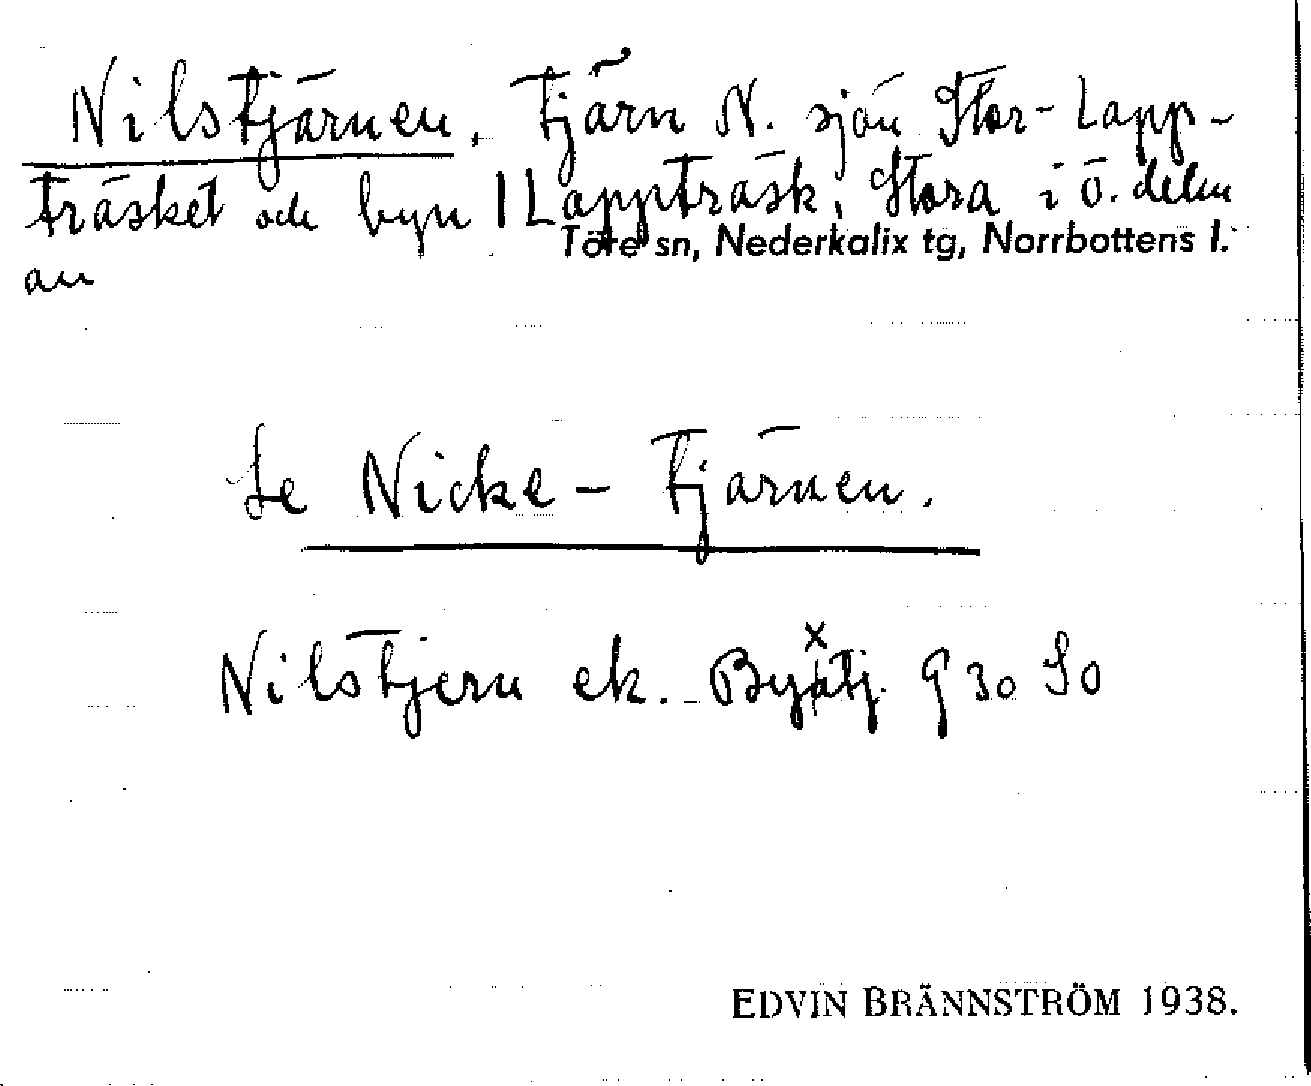 Nilstjärnen. Tjärn N. sjön Stor-Lapp-
träsket och byn 1 Lappträsk, Stora i ö. delen
Töre sn, Nederkalix tg, Norrbottens l.
av
Se Nicke-Tjärnen.
Nilstjern ek. 930 So
EDVIN BRÄNNSTRÖM 1938.